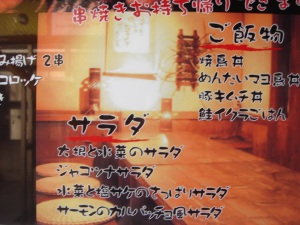 串焼きお持ち帰りできま
み揚げ 2串
コロッケ
ご飯物
焼鳥丼
めんたいマヨ鳥丼
豚キムチ丼
鮭イクラごはん
サラダ
大根と水菜のサラダ
シャコツナサラダ
水菜と塩サケのさっぱりサラダ
サーモンのカルパッチョ風サラダ